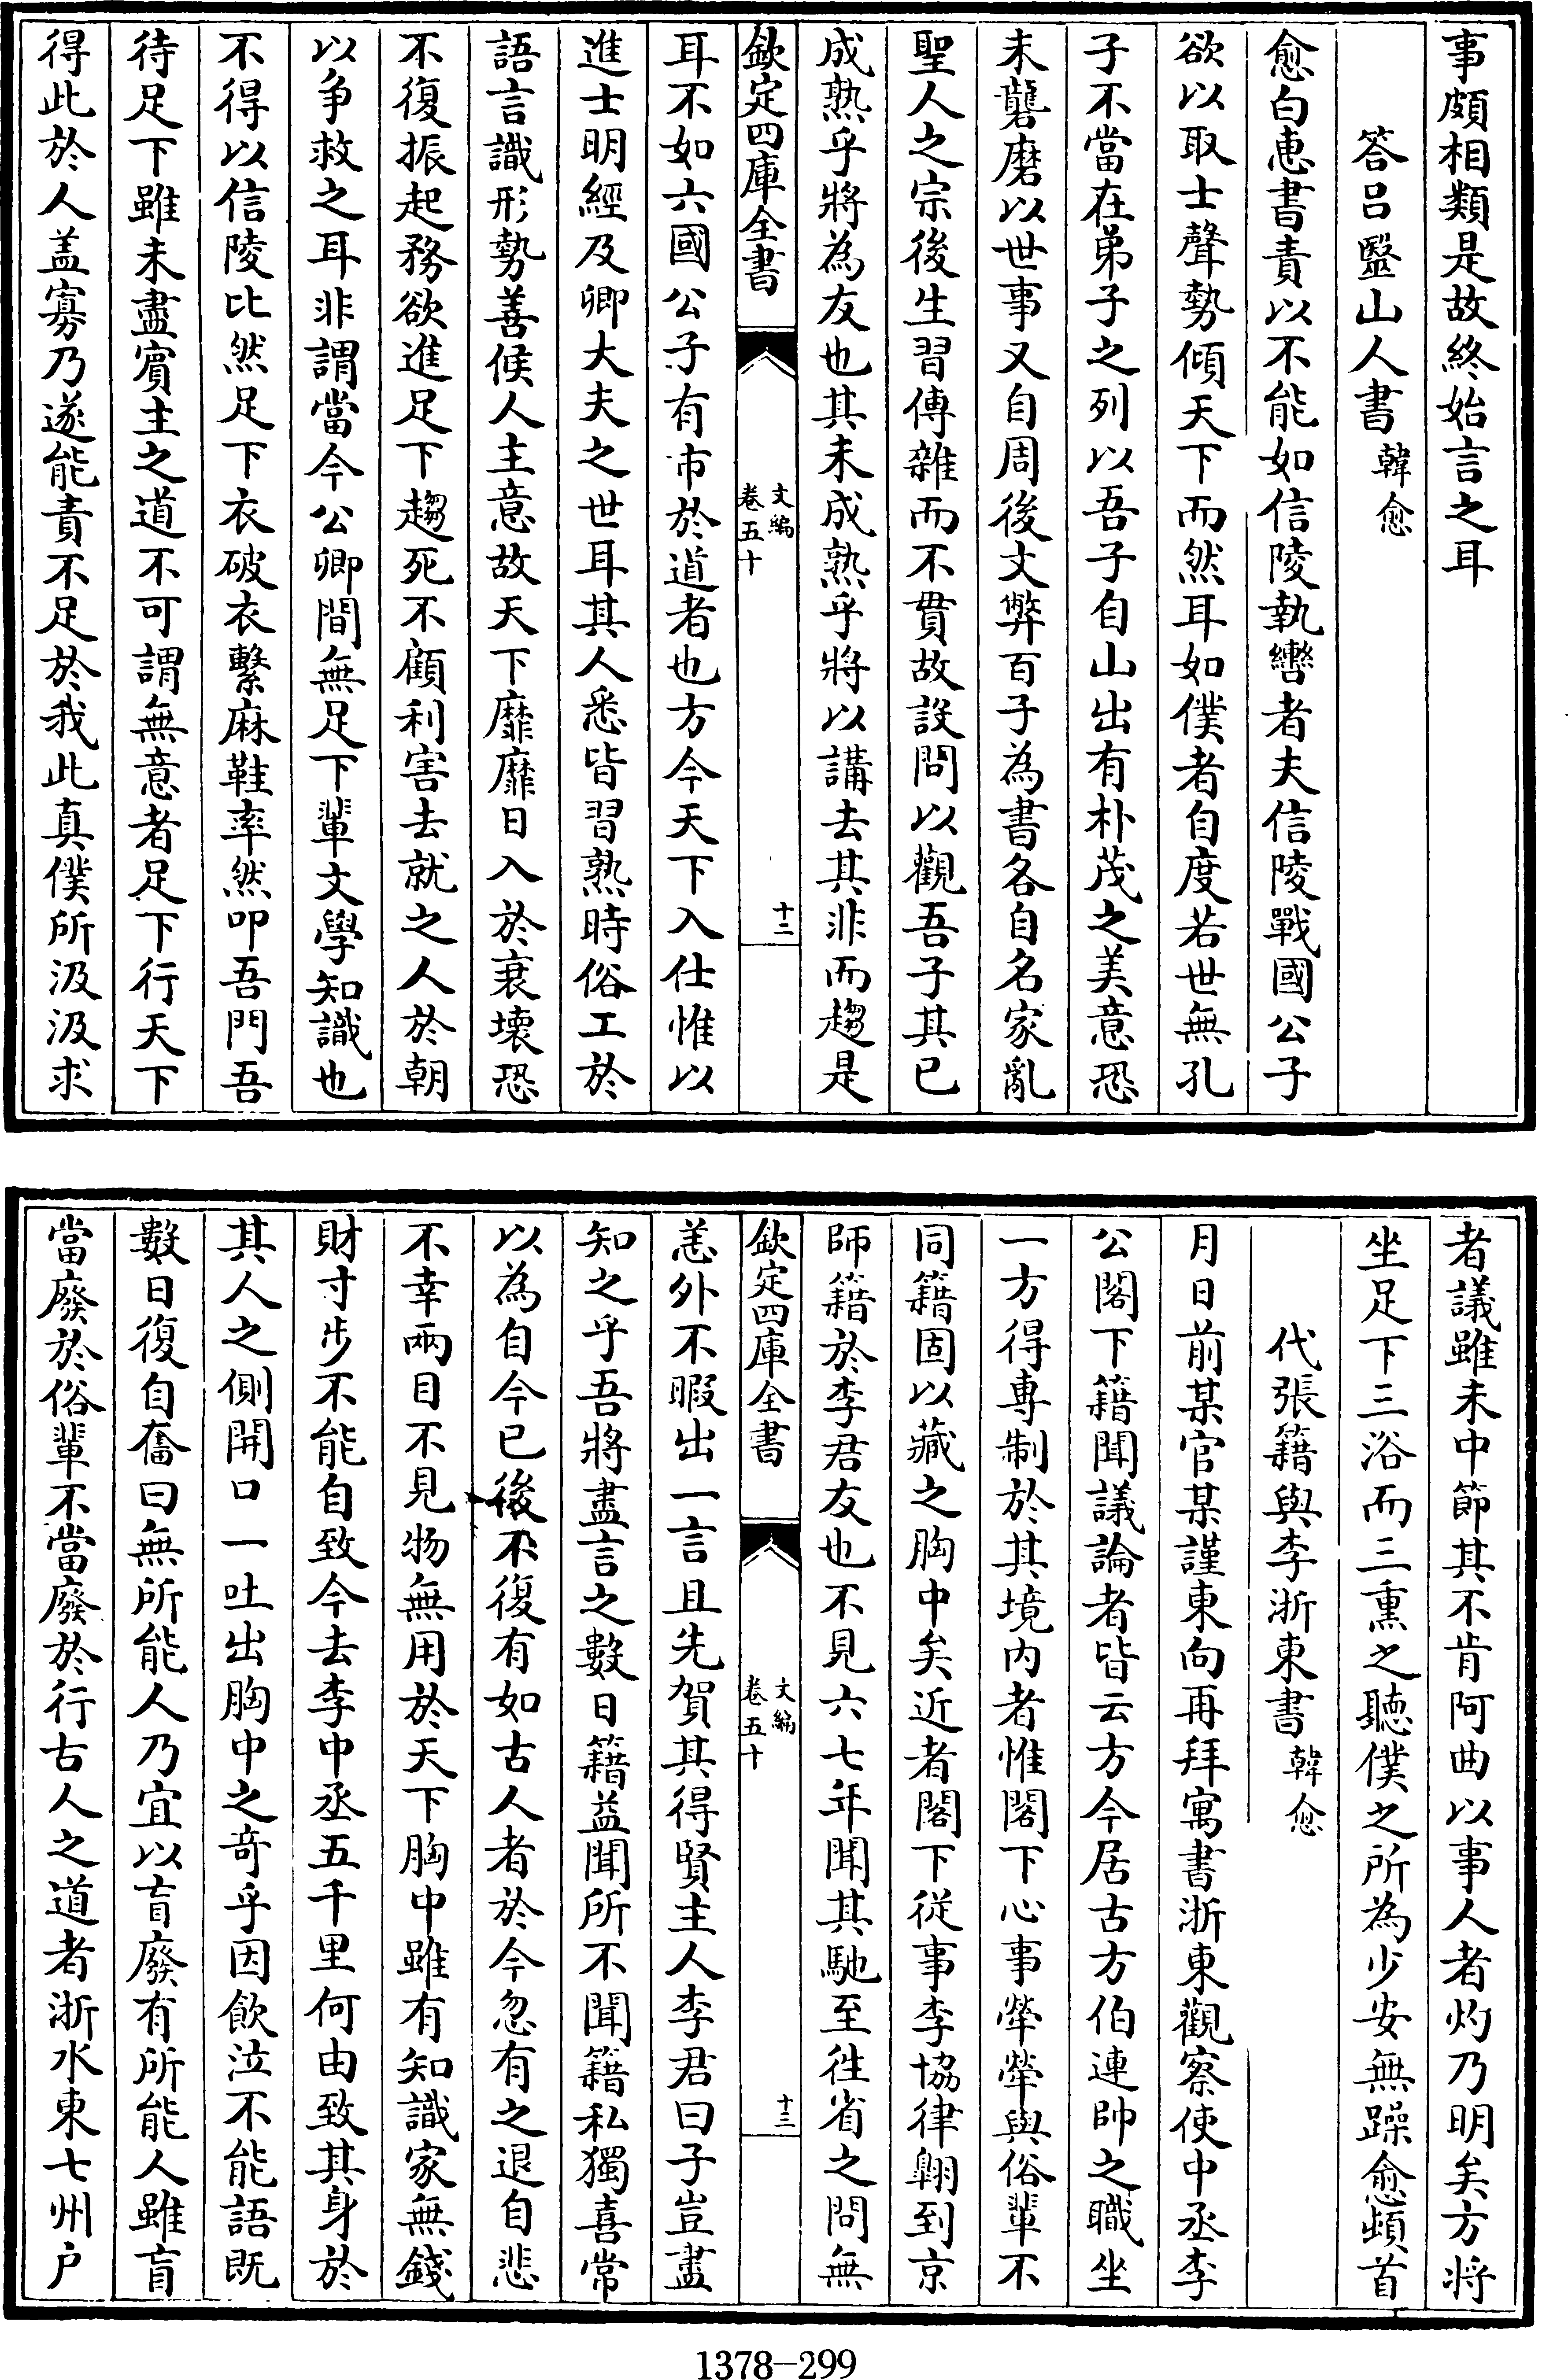 事頗相類是故終始言之耳
答呂毉山人書韓愈
愈白惠書責以不能如信陵執轡者夫信陵戰國公子
欲以取士聲勢傾天下而然耳如僕者自度若世無孔
子不當在弟子之列以吾子自山出有朴茂之美意恐
未礲磨以世事又自周後文弊百子為書各自名家亂
聖人之宗後生習傳雜而不貫故設問以觀吾子其已
成熟乎將為友也其未成熟乎將以講去其非而趨是
欽定四庫全書
文編
卷五十
十二
耳不如六國公子有市於道者也方今天下入仕惟以
進士明經及卿大夫之世耳其人悉皆習熟時俗工於
語言識形勢善候人主意故天下靡靡日入於衰壞恐
不復振起務欲進足下趨死不顧利害去就之人於朝
以爭救之耳非謂當今公卿間無足下輩文學知識也
不得以信陵比然足下衣破衣繫麻鞋率然叩吾門吾
待足下雖未盡賓主之道不可謂無意者足下行天下
得此於人盖寡乃遂能責不足於我此真僕所汲汲求
者議雖未中節其不肯阿曲以事人者灼乃明矣方將
坐足下三浴而三熏之聽僕之所為少安無躁愈頓首
代張籍與李浙東書韓愈
月日前某官某謹東向再拜寓書浙東觀察使中丞李
公閣下籍聞議論者皆云方今居古方伯連帥之職坐
一方得專制於其境内者惟閣下心事犖犖與俗輩不
同籍固以藏之胸中矣近者閣下從事李協律翺到京
師籍於李君友也不見六七年聞其馳至徃省之問無
欽定四庫全書
文編
卷五十
十三
恙外不暇出一言且先賀其得賢主人李君曰子豈盡
知之乎吾將盡言之數日籍益聞所不聞籍私獨喜常
以為自今已後不復有如古人者於今忽有之退自悲
不幸兩目不見物無用於天下胸中雖有知識家無錢
財寸步不能自致今去李中丞五千里何由致其身於
其人之側開口一吐出胸中之奇乎因飲泣不能語既
數日復自奮曰無所能人乃宜以盲廢有所能人雖盲
當廢於俗輩不當廢於行古人之道者浙水東七州户
1378—299